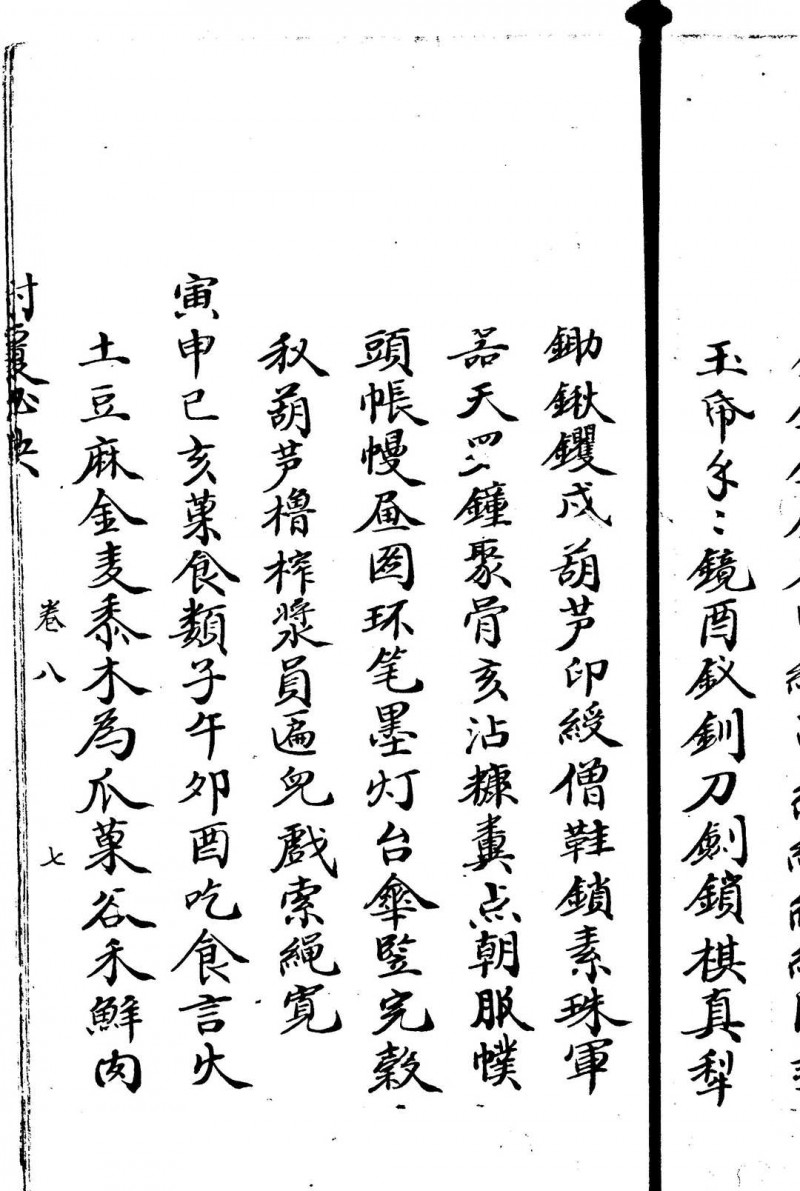 玉帝手〻鏡酉釵釧刀劍鎖棋真犁
鋤鍬钁戌葫芦印綬僧鞋鎖素珠軍
器天四二鐘聚骨亥沾糠糞点朝服幞
頭帳幔画圆环笔墨灯台傘竖完穀
秋葫芦櫓榨漿員匾兒戲索繩寬
寅申巳亥菓食類子午卯酉吃食言火
土豆麻金麦黍木為瓜菓谷禾鮮肉
射覆必决
卷八
七